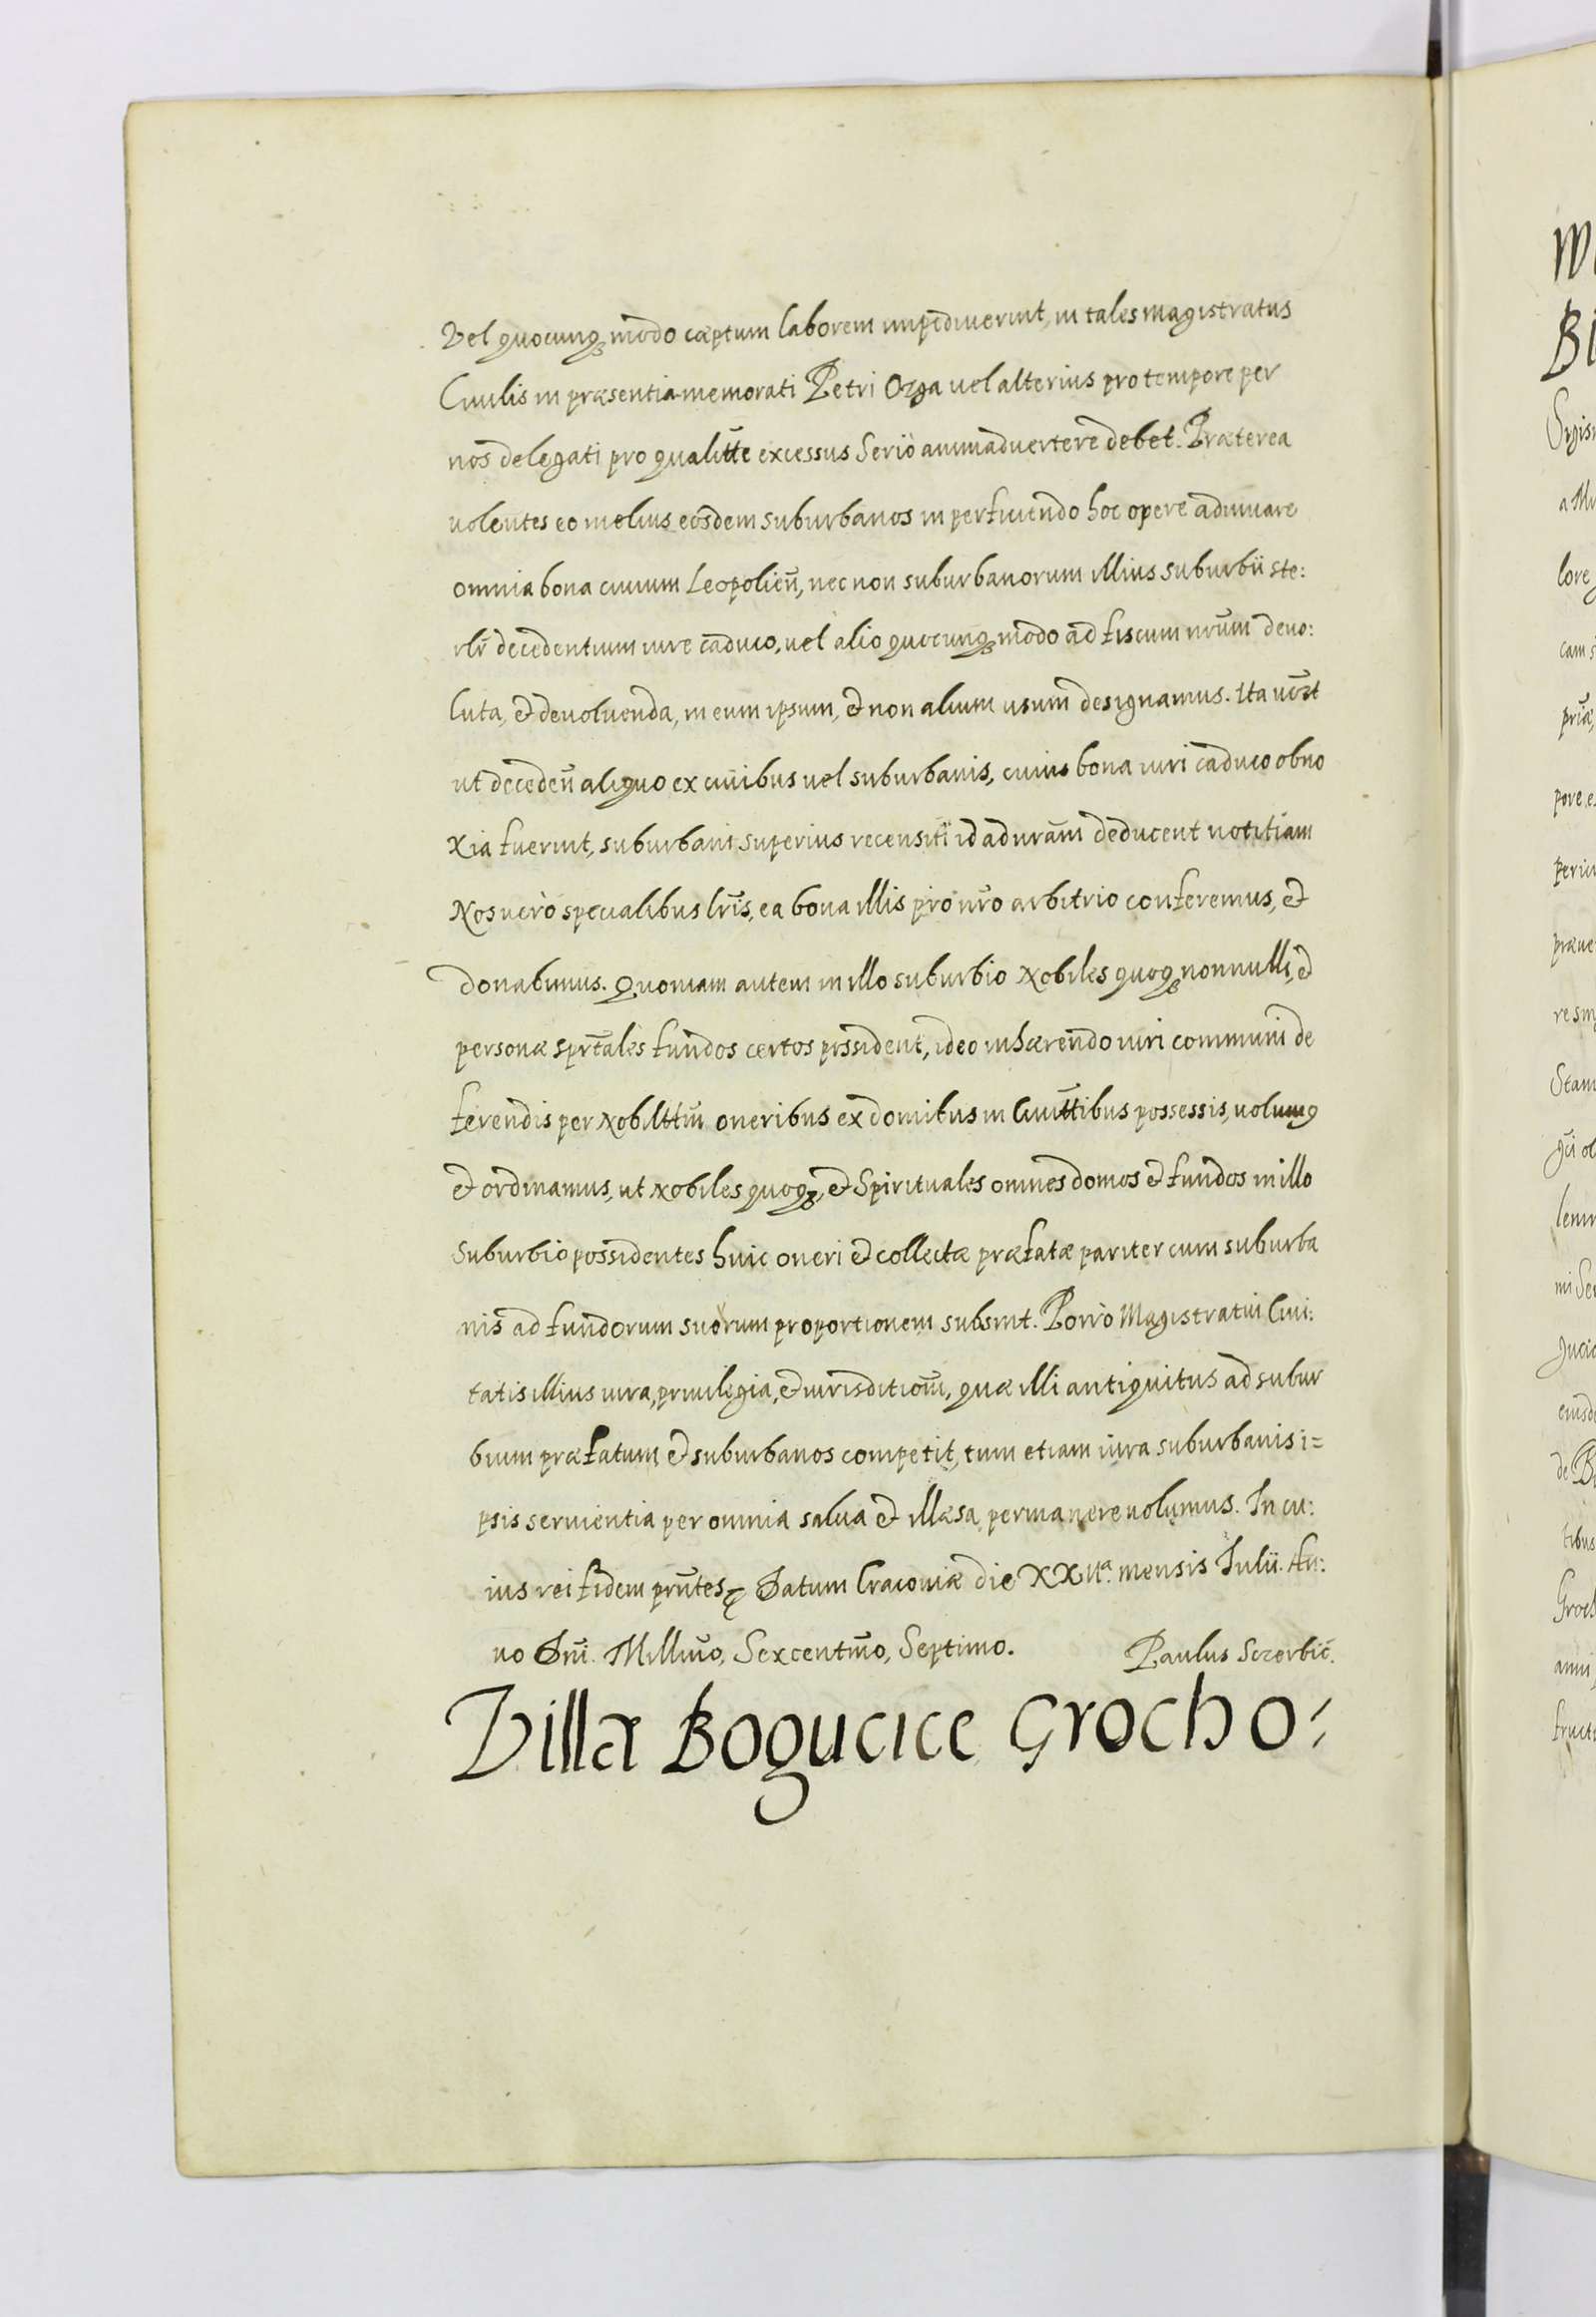 Vel quocunq₃ modo cæptum laborem impediverint, in tales magistratus
Civilis in præsentia memorati Petri Ozga vel alterius pro tempore per
nos delegati pro qualitte excessus Seriò animadvertere debet. Præterea
volentes eo melius eosdem suburbanos in perficiendo hoc opere adiuvare
omnia bona civium Leopolień, nec non suburbanorum illius suburbii ste:
rlr̃ decedentium iure caduco, vel alio quocunq₃ modo ad fiscum nrũm devo:
luta, & devolvenda, in eum ipsum, & non alium usum designamus. Ita
ut decedeñ aliquo ex civibus vel suburbanis, cuius bona iuri caduco obno
xia fuerint, suburbani superius recensiti id ad nrãm deducent notitiam
Nos verò specialibus lrĩs, ea bona illis pro nrõ arbitrio conferemus, &
donabimus. Quoniam autem in illo suburbio Nobiles quoq₃ nonnulli, &
personæ sprtãles fundos certos pssident, ideo inhærendo iuri communi de
ferendis per Nobilttm̃ oneribus ex domibus in Civittibus possessis, volumꝰ
& ordinamus, ut Nobiles quoq₃, & Spirituales omnes domos & fundos in illo
Suburbio possidentes huic oneri & collectæ præfatæ pariter cum suburba
nis ad fundorum suorum proportionem subsint. Porrò Magistratui Civi:
tatis illius iura, privilegia, & iurisditiom̃, quæ illi antiquitus ad subur
bium præfatum & suburbanos competit, tum etiam iura suburbanis i=
psis servientia per omnia salva & illæsa permanere volumus. In cu:
ius rei fidem prñtes Datum Cracoviæ die mensis Iulii. An:
no Dñi. Millm̃o, Sexcentm̃o, Septimo. Paulus Sczerbić.
Villæ Bogucice Grocho:
W
Bi
a Mu
lore
cam s
priæ,
pore, e
pericu
præve
re sin
Stani
lenin
mi Se
eiusde
de B
tibus
Groch
anni
fructu